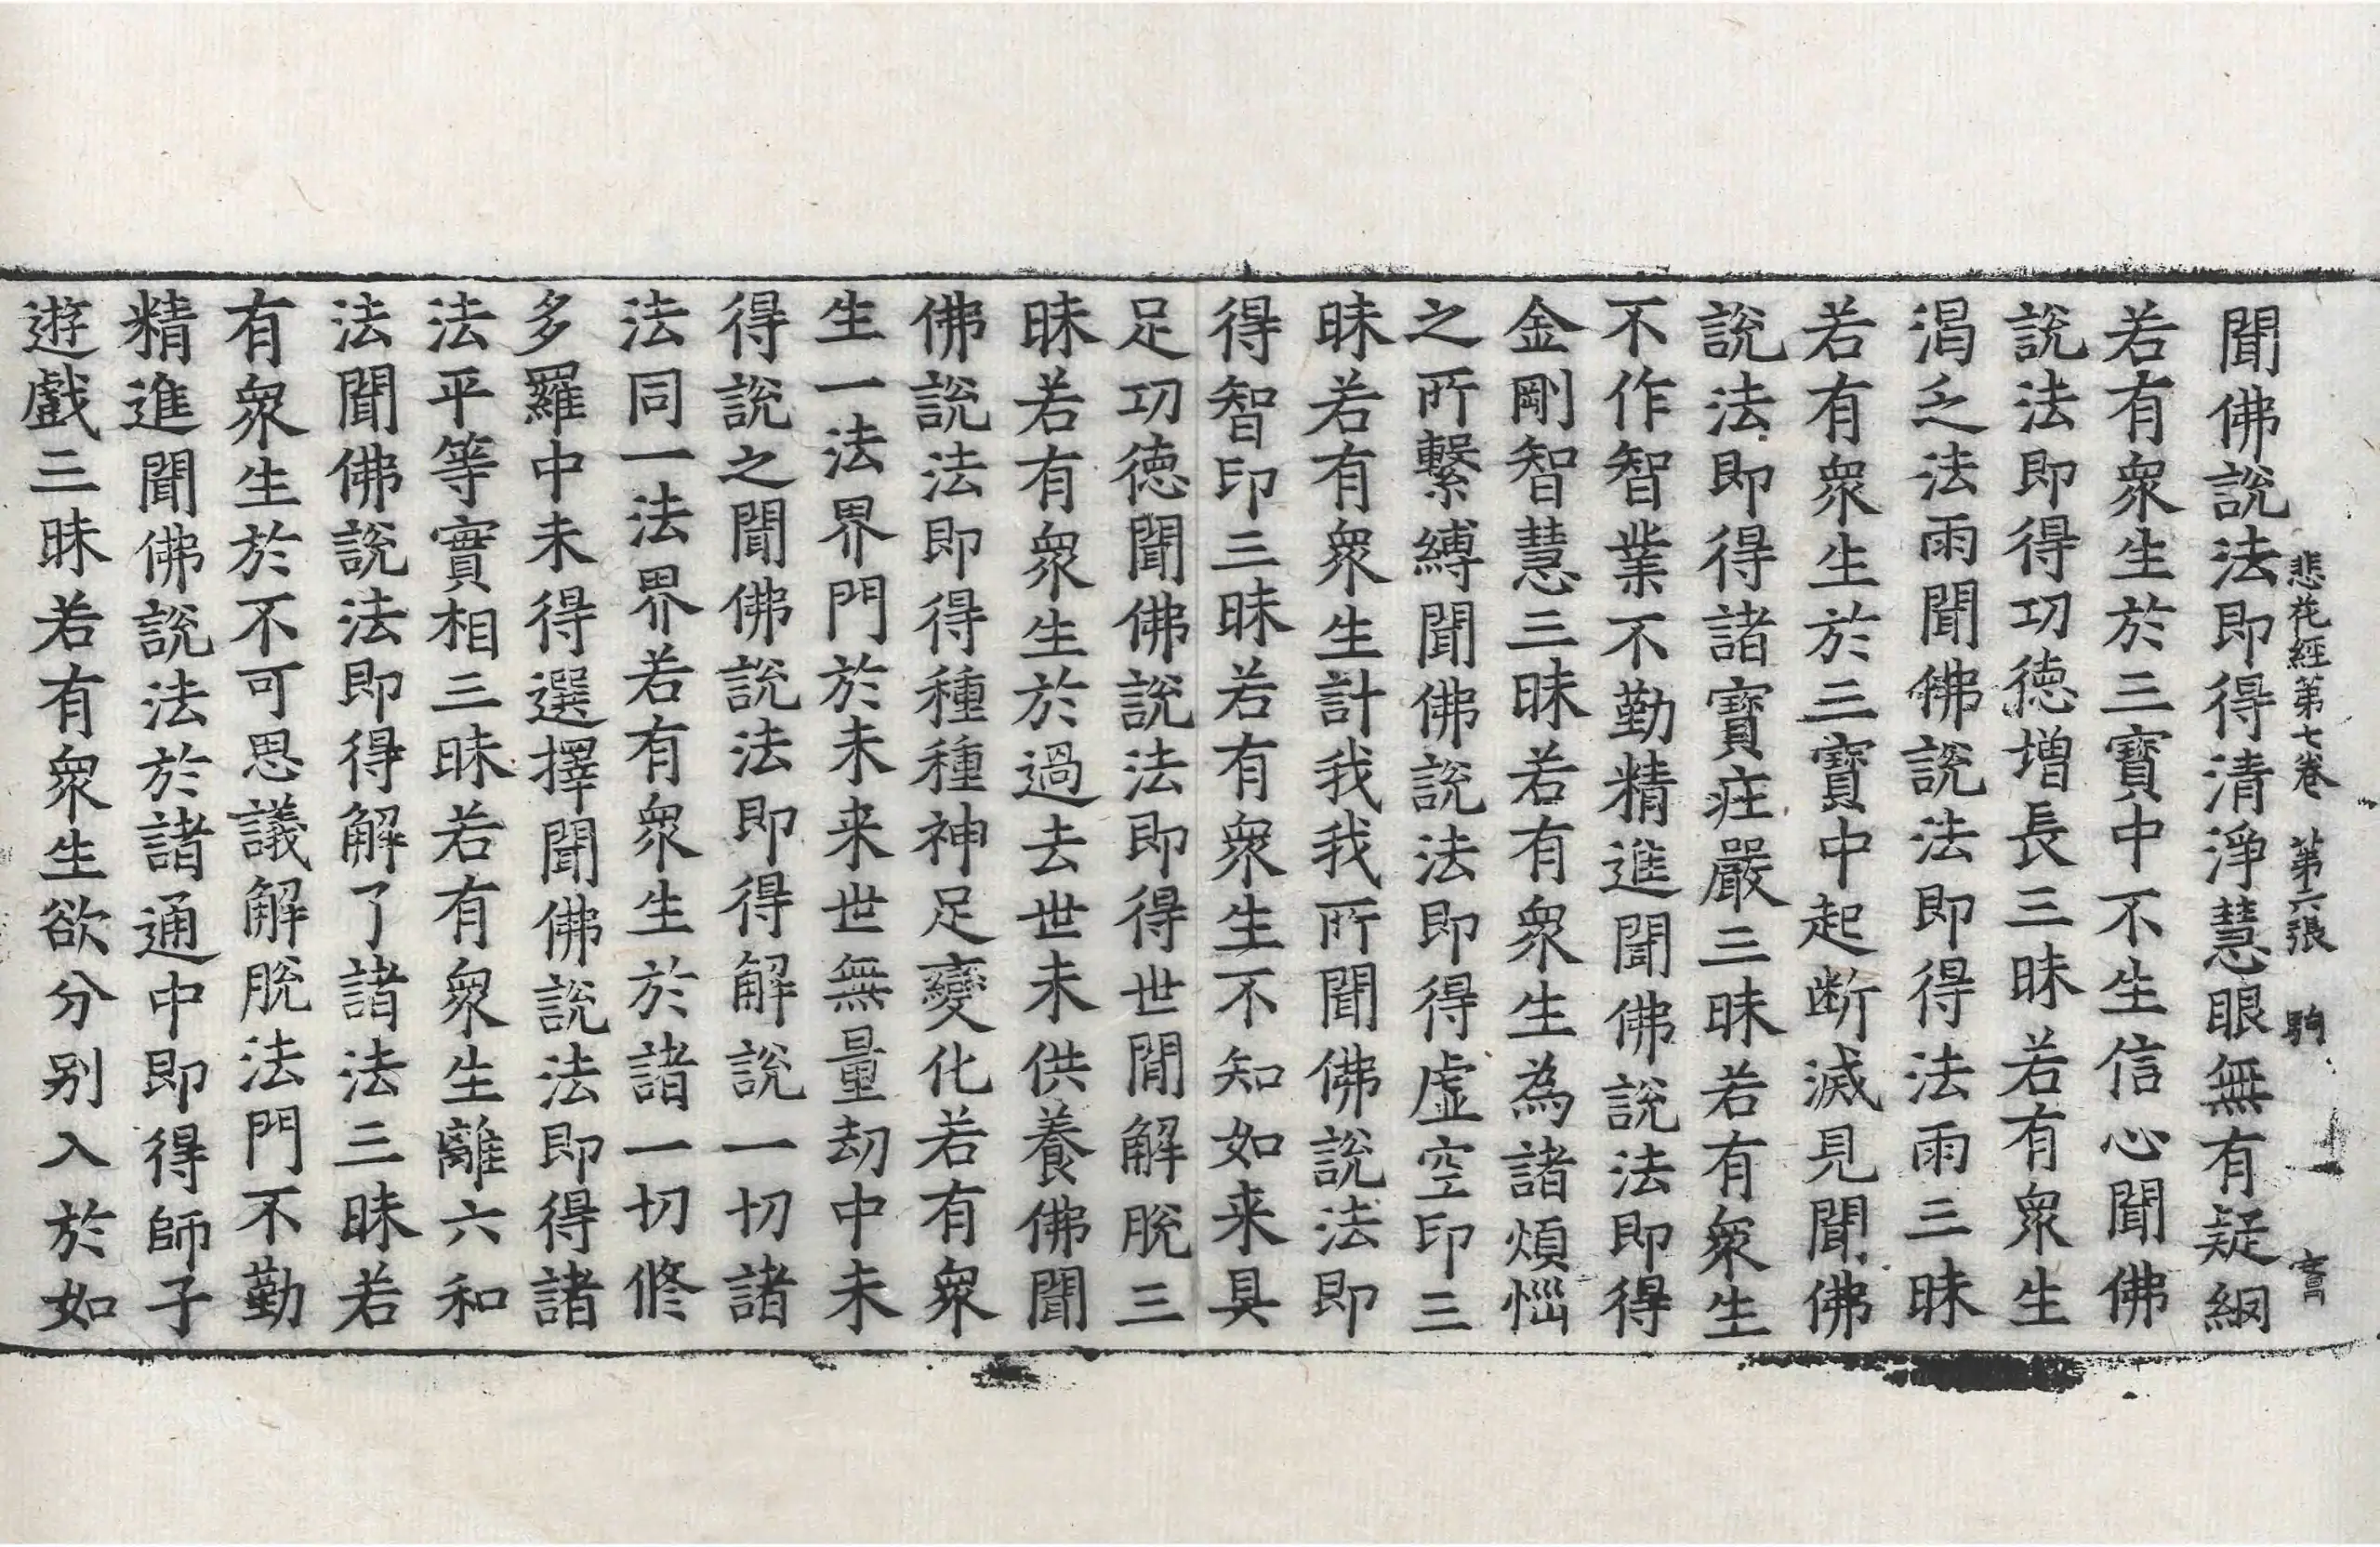 悲花經第七卷　第六張　駒
聞佛說法即得清淨慧眼無有疑網
若有衆生於三寶中不生信心聞佛
說法即得功德增長三昧若有衆生
渴乏法雨聞佛說法即得法雨三昧
若有衆生於三寶中起断滅見聞佛
說法即得諸寶疰嚴三昧若有衆生
不作智業不勤精進聞佛說法即得
金剛智慧三昧若有衆生為諸煩惱
之所繫縛聞佛說法即得虛空印三
昧若有衆生計我我所聞佛說法即
得智印三昧若有衆生不知如来具
足功德聞佛說法即得世閒解脫三
昧若有衆生於過去世未供養佛聞
佛說法即得種種神足變化若有衆
生一法界門於未来世無量劫中未
得說之聞佛說法即得解說一切諸
法同一法界若有衆生於諸一切修
多羅中未得選擇聞佛說法即得諸
法平等實相三昧若有衆生離六和
法聞佛說法即得解了諸法三昧若
有衆生於不可思議解脫法門不勤
精進聞佛說法於諸通中即得師子
遊戲三昧若有衆生欲分別入於如